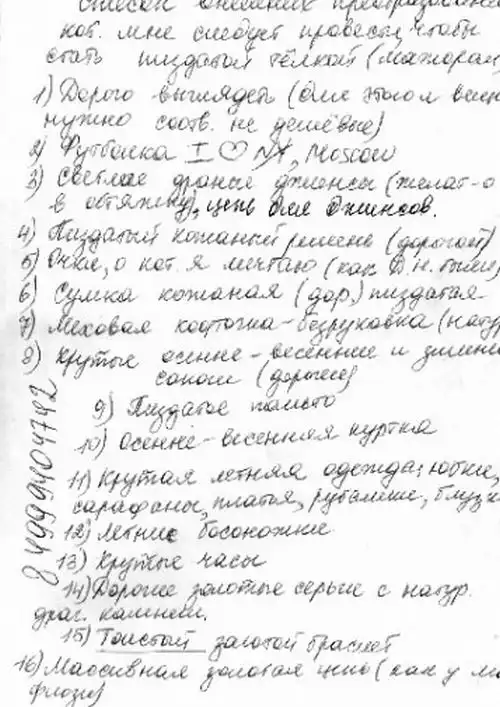 Список внешних преобразован
кот. мне следует провести, чтобы
стать пиздатой тёлкой (мажоркой
1) Дорого выглядеть (для этого вещи
нужно соотв. не дешёвые)
2) Футболка I ♡ NY, Moscow
3) Светлые драные джинсы (желат-о
в обтяжку), цепь для джинсов.
4) Пиздатый кожаный ремень (дорогой)
5) Очки, о кот. я мечтаю (как
6) Сумка кожаная (дор.) пиздатая
7) Меховая кофточка-безрукавка (нату
8) Крутые осенне-весенние и зимни
сапоги (дорогие)
9) Пиздатое пальто
10) Осенне-весенняя куртка
11) Крутая летняя одежда: юбки,
сарафаны, платья, рубашки, блузк
12) Летние босоножки
13) Крутые часы
14) Дорогие золотые серьги с натур.
драг. камнем.
15) Толстый золотой браслет
16) Массивная золотая цепь (как у
8 4999404742